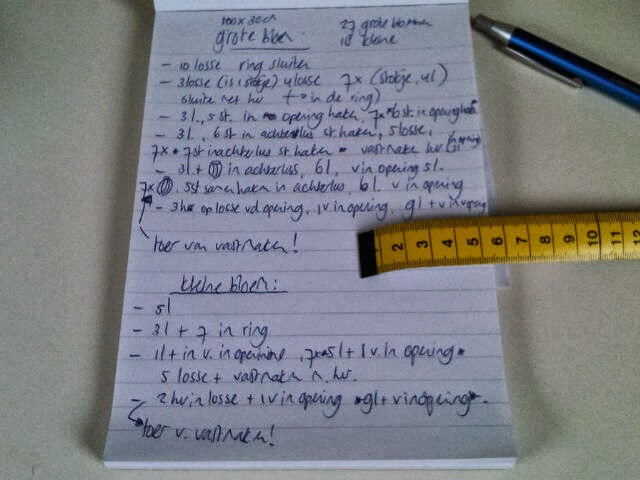 100 x 30 cm
27 grote bloemen
18 kleine
grote bloem:
- 10 losse ring sluiten
- 3 losse (is 1 stokje) 4 losse 7x (stokje, 4l)
sluite met hv in de ring)
- 3l, 5st. in opening haken, 7x * 6st in opening haken *
- 3l, 6st in achterlus st haken, 5 losse,
7x * 7st in achterlus st haken * vastmaken hv
- 3l + in achterlus, 6l, v in opening 5l.
7x 5st samen haken in achterlus, 6l v in opening
- 3hv op losse vd opening, 1v in opening, 9l + v in opening
toer van vastmaken!
kleine bloem:
- 5l
- 3l + 7 in ring
- 1l + in v. in opening, 7x * 5l + 1v. in opening *
5 losse + vastmaken m. hv.
- 2 hv in losse + 1v in opening * 9l + v in opening *.
toer v. vastmaken!
2 3 4 5 6 7 8 9 10 11 12